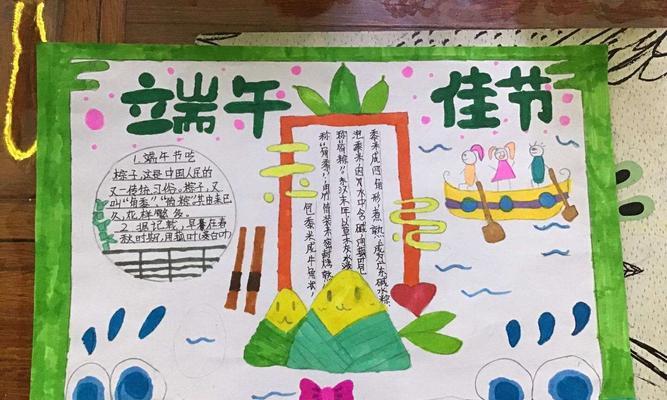 端午 佳节
1.端午节吃
粽子,这是中国人民的
又一传统习俗。粽子,又
叫"角黍"、"筒粽"其由来已
久,花样繁多。
2.据记载,早在春
秋时期,用菰叶(茭白叶)
包黍米成牛角状,
称"角黍";用竹筒装米密封烤熟,
称"筒粽"。东汉末年以草木灰水浸
泡黍米,因水中含碱,用菰叶包
黍米成四角形,煮熟,成为广东碱水粽.